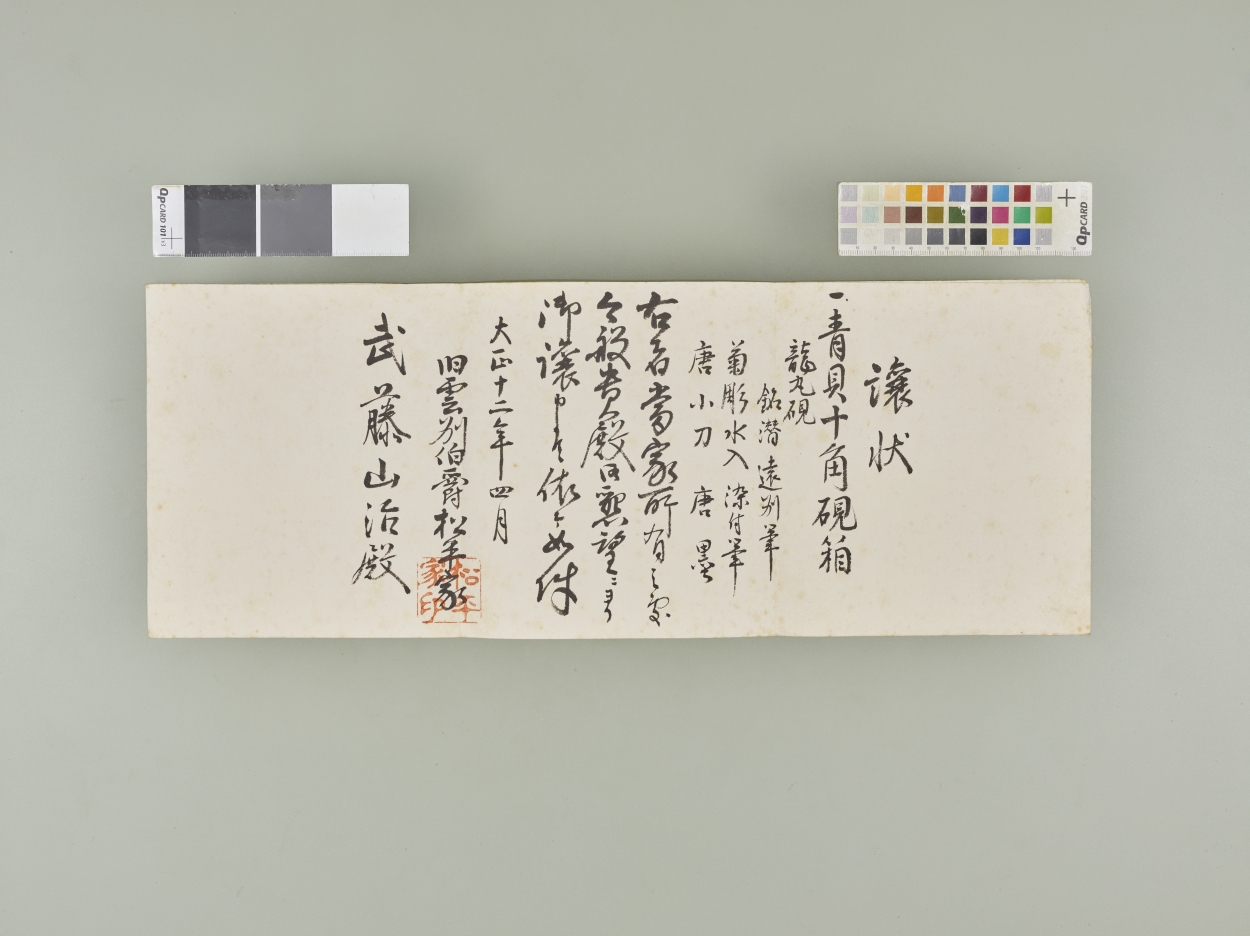 讓状
一青貝十角硯箱
龍九硯
銘潜 遠州筆
菊彫水入 染付筆
唐小刀 唐墨
右者當家所有之處
今般貴殿御懇望ニより
御讓申候依而如件
大正十二年四月
旧雲州伯爵松平家
松平家印
武藤山治殿
QPCARD 101 v3
QPCARD